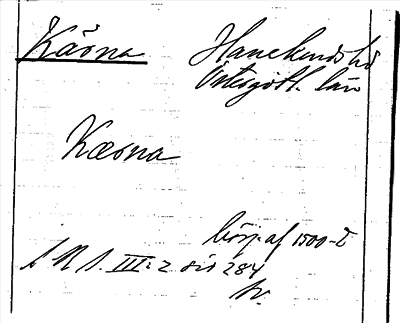 Kärna Hanekinds hd
Östergötl. län
Kærna
börj. af 1500-t.
S R S. III: 2 sid 284